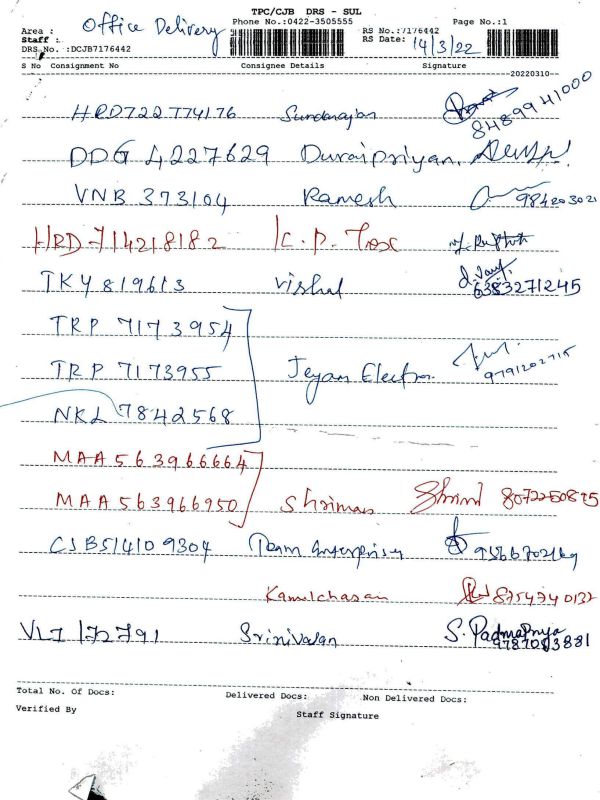 TPC/CJB DRS - SUL
Area : Office Delivery Phone No.:0422-3505555 RS No.:7176442 Page No.:1
Staff : RS Date: 14/3/22
DRS No. :DCJB7176442
S No Consignment No Consignee Details Signature
20220310
HRD722774176 Sundarajan 8489941000
DDG 4227629 Duraipriyan.
VNB 373104 Ramesh 984203021
HRD 714218182 K.P. Tex
TKY 819613 Vishal 6383271245
TRP 7173954
TRP 7173955 Jeyam Electro. 9791202715
NKL 7842568
MAA 563966664
MAA 563966950 Shriman 8072250875
CJB514109304 Team Enterprises
Kamalhasan 8754740132
VLI 172791 Srinivasan S. Padmapriya
9787093881
Total No. Of Docs: Delivered Docs: Non Delivered Docs:
Verified By Staff Signature